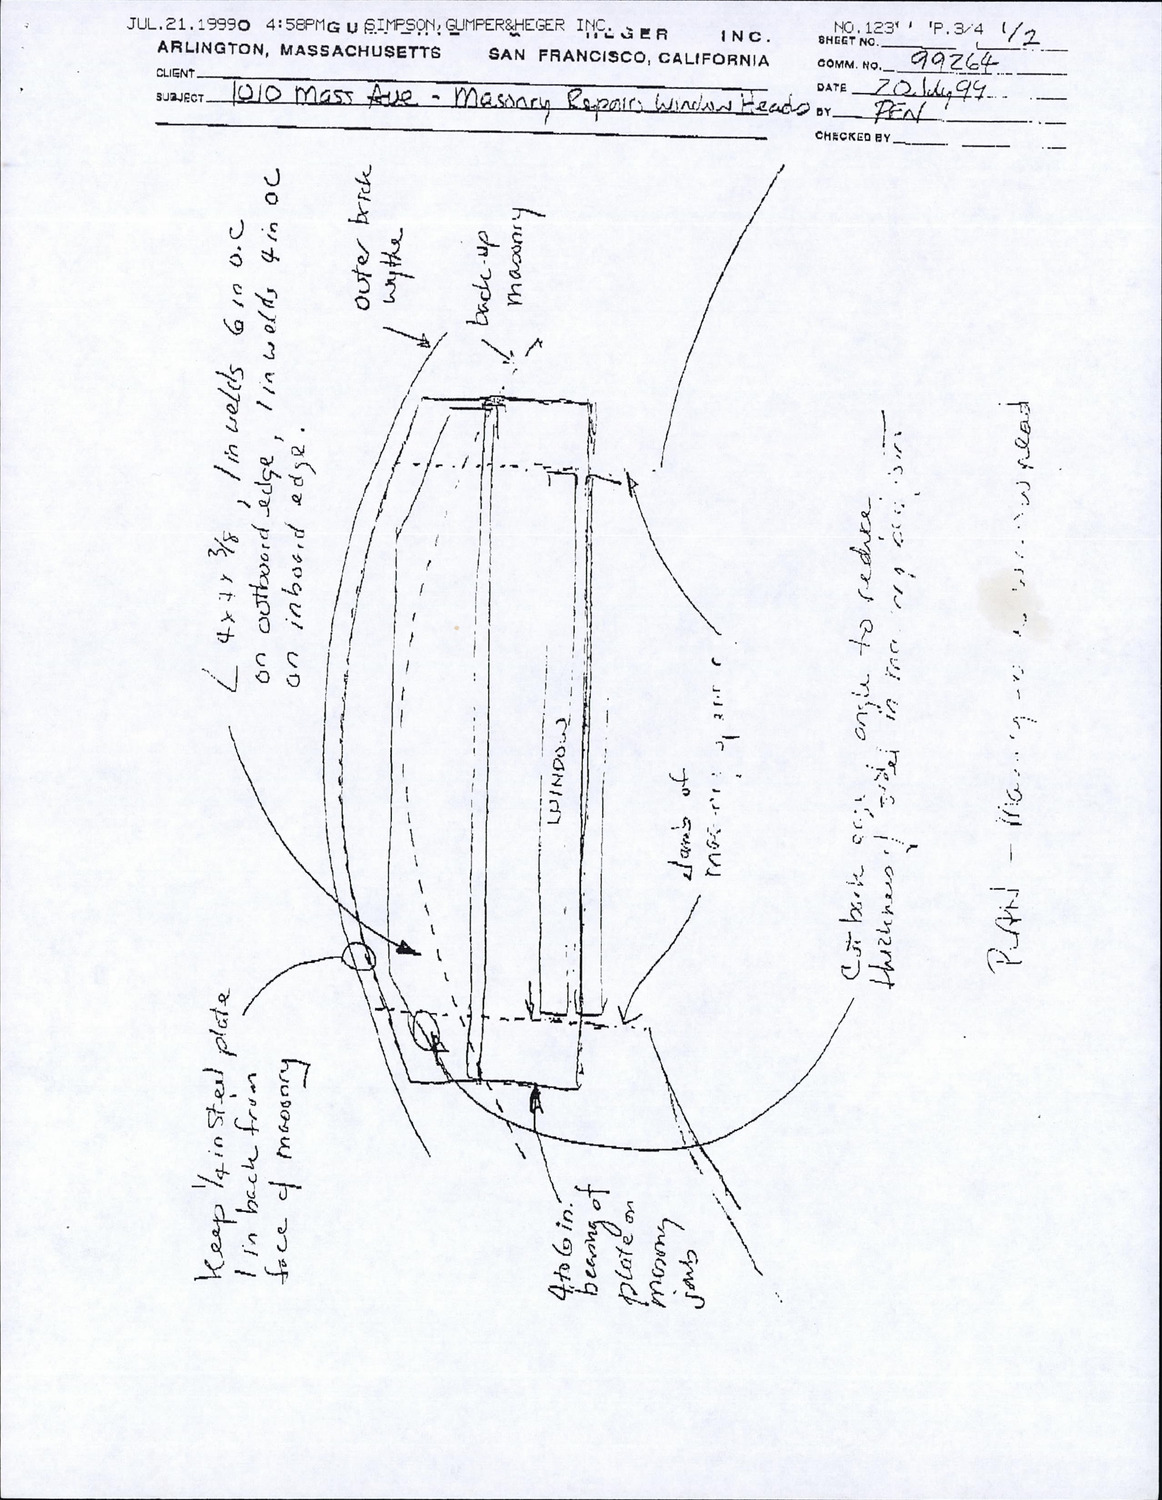 JUL.21.1999 4:58PM SIMPSON, GUMPER&HEGER INC. NO.123 P.3/4 1/2
INC.
ARLINGTON, MASSACHUSETTS SAN FRANCISCO, CALIFORNIA
SHEET NO.
COMM. NO. 99264
CLIENT
DATE 20 July 99
SUBJECT 1010 Mass Ave - Masonry Repair, Window Heads
BY PEN
CHECKED BY
∠ 4x4x 3/8, 1 in welds 6 in o.c
on outboard edge, 1 in welds 4 in oc
on inboard edge.
outer brick
wythe
back-up
masonry
WINDOW
Jamb of
Cut back angle to reduce
thickness of in
PLAN -
Keep 1/4 in steel plate
1 in back from
face of masonry
4 to 6 in.
bearing of
plate on
masonry
jamb